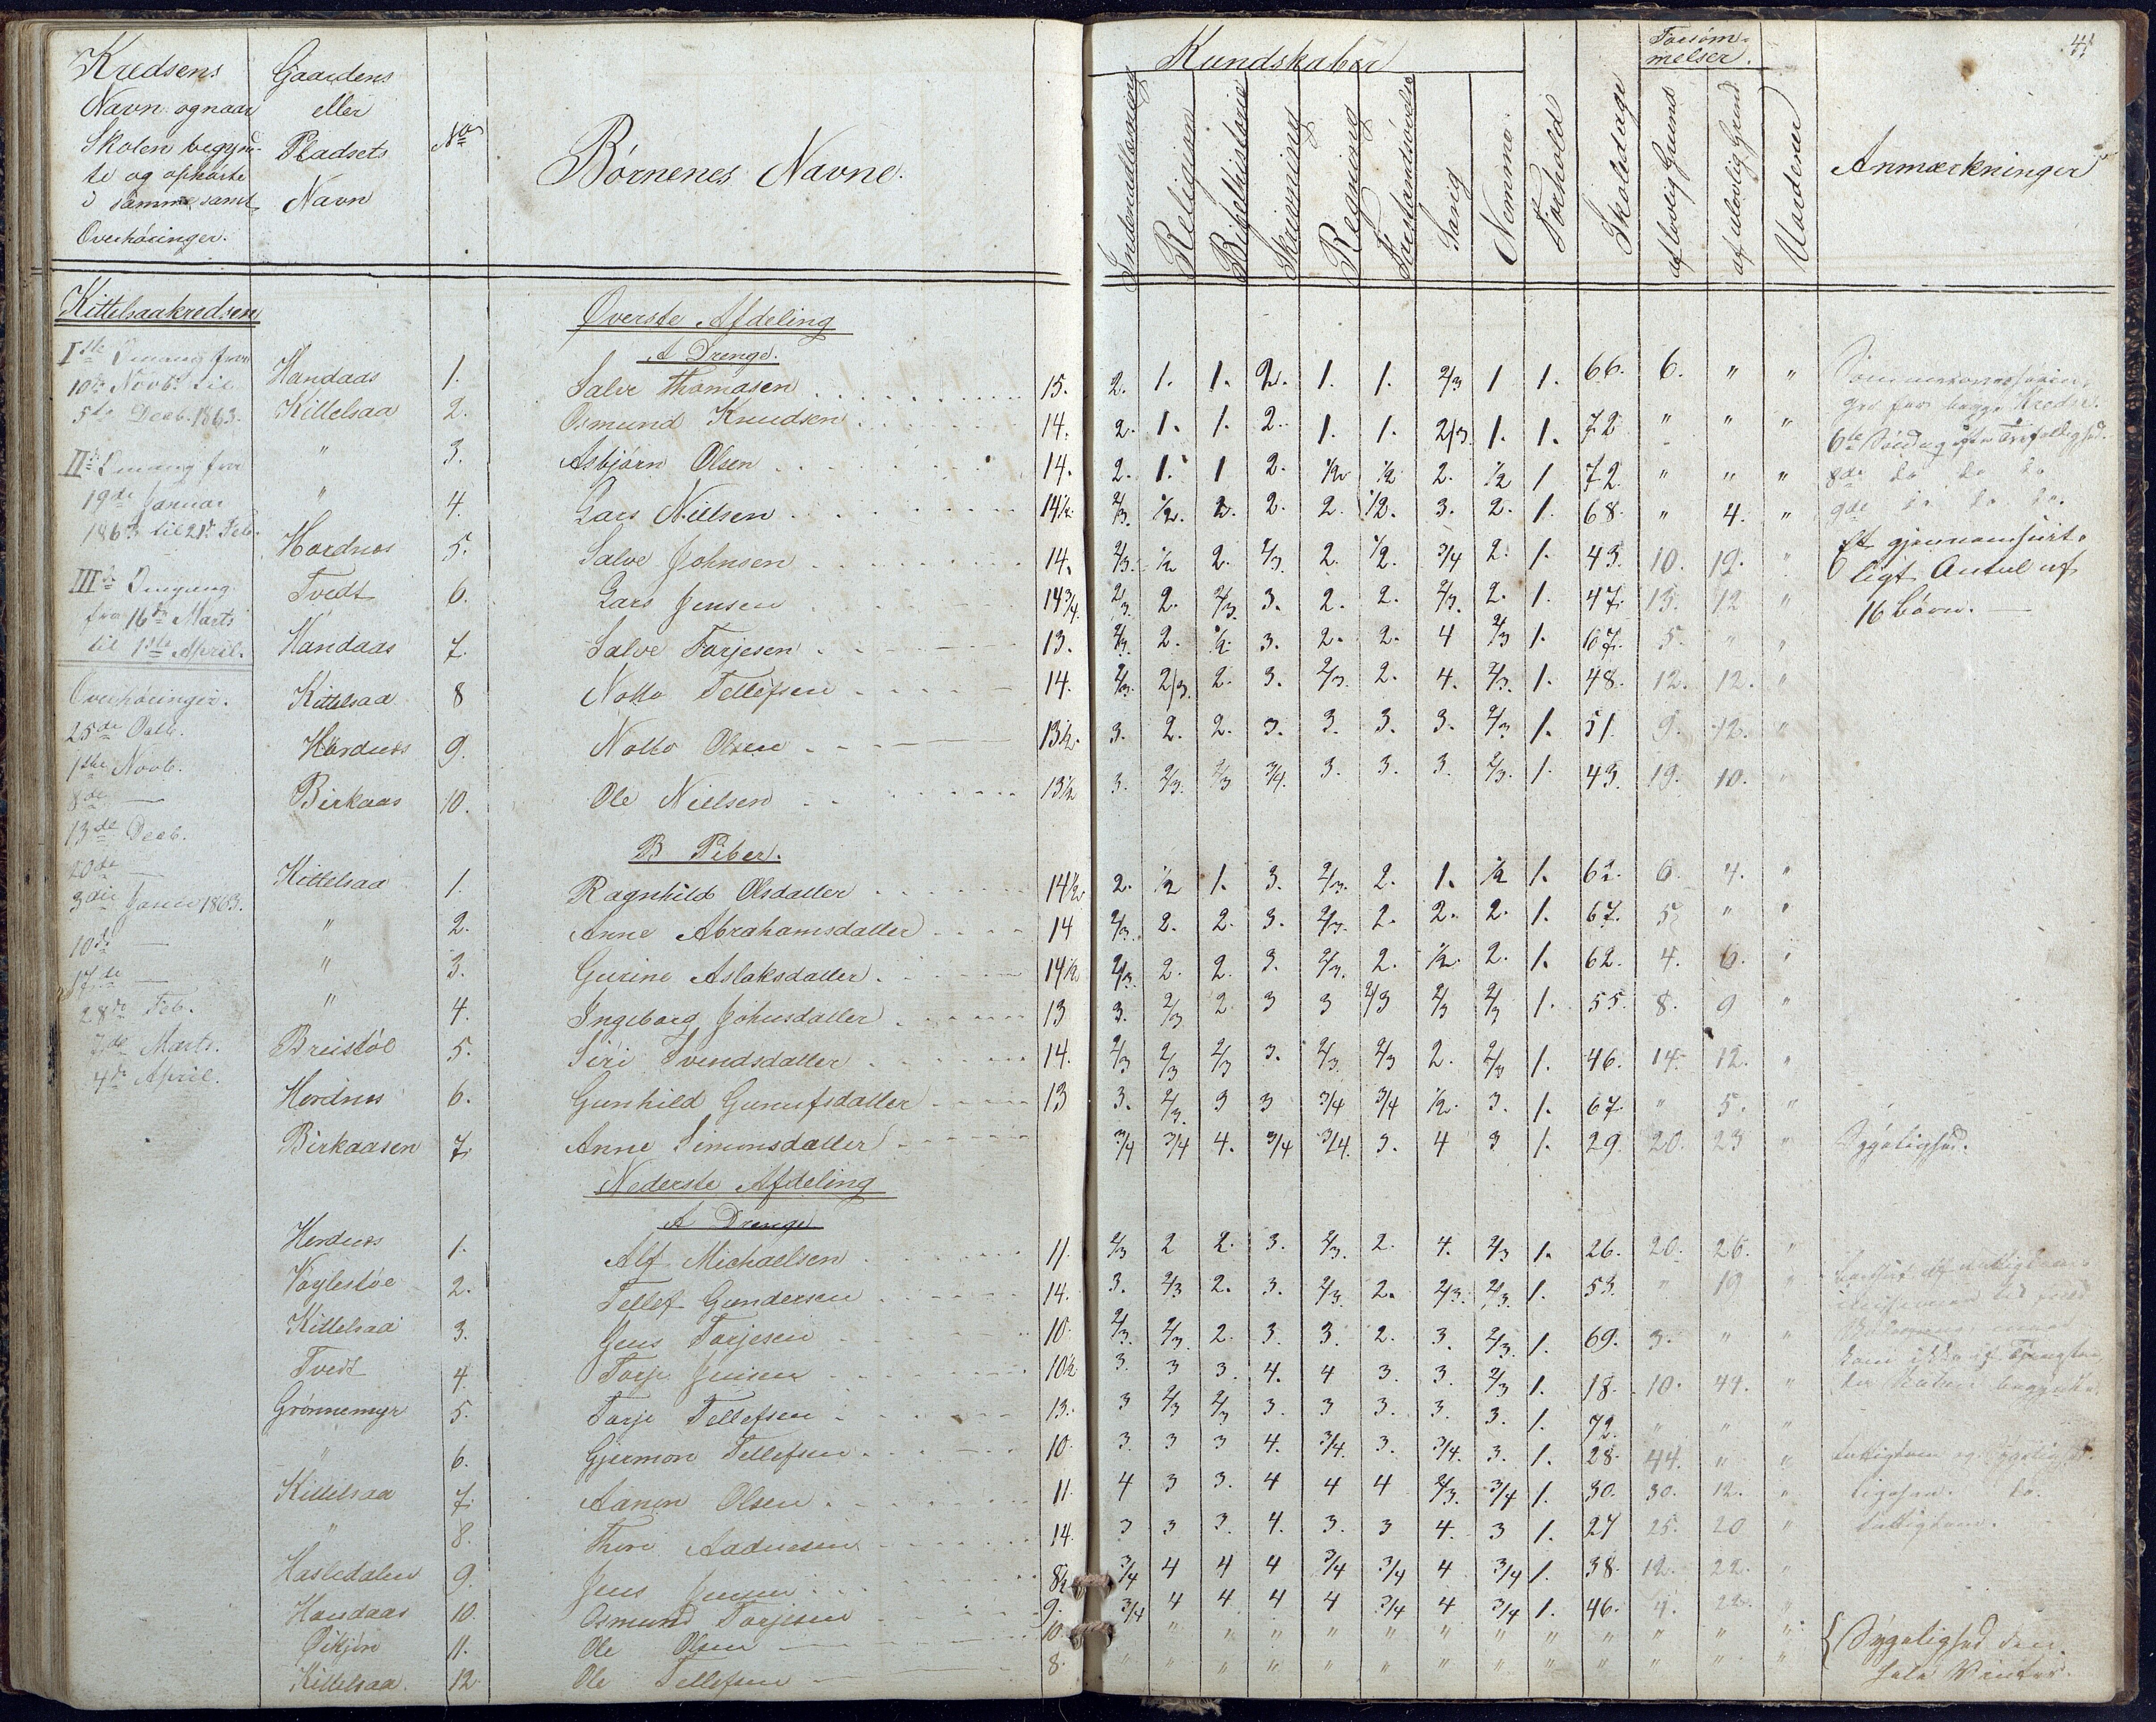 Kredsens
Navn og naar
Skolen begynd-
te og ophørte
i samme samt
Overhøringer.
Gaardens
eller
Pladsets
Navn
No
Børnenes Navne.
Kundskaber
Indenadlæsning
Religion
Bibelhistorie
Skrivning
Regning
Forstandsøvelse
Sang
Nemme
Forhold
Skoledage
Forsøm-
melser.
af lovlig Grund
af ulovlig Grund
Vurderer
Anmærkninger
41
Kittelsaakredsen
Iste Omgang fra
10de Novbr. til
5te Decb. 1863.
IIde Omgang fra
19de Januar
1863 til 21de Feb.
IIIde Omgang
fra 16de Marts
til 1ste April.
Overhøringer.
25de Octb.
1ste Novb.
8de —
13de Decb.
20de —
3die Januar 1863.
10de —
17de —
28de Feb.
7de Marts.
4de April.
Øverste Afdeling
A Drenge.
Handaas 1. Salve Thomasen 15. 2. 1. 1. 2. 1. 1. 2/3 1 1. 66. 6. " "
Kittelsaa 2. Osmund Knudsen 14. 2. 1. 1. 2. 1. 1. 2/3. 1. 1. 72 " " "
" 3. Asbjørn Olsen 14. 2. 1. 1 2. 1/2 1/2 2. 1/2 1 72. " " "
" 4. Lars Nielsen 14 1/2 2/3. 1/2. 2. 2. 2. 1/2. 3. 2. 1. 68. " 4. "
Hordnes 5. Salve Johnsen 14. 2/3. 1/2 2. 2/3. 2. 1/2. 3/4 2. 1. 43. 10. 19. "
Tvedt 6. Lars Jensen 14 3/4 2/3. 2. 2/3. 3. 2. 2. 2/3. 2. 1. 47. 13. 12 "
Handaas 7. Salve Tarjesen 13. 2/3. 2. 1/2. 3. 2. 2. 4 2/3 1. 67. 5. " "
Kittelsaa 8 Notto Tellefsen 14. 2/3. 2/3. 2. 3. 2/3. 2. 4. 2/3. 1. 48. 12. 12. "
Hordnes 9. Notto Olsen 13 1/2 3. 2. 2. 3. 3. 3. 3. 2/3 1. 51. 9. 12. "
Birkaas 10. Ole Nielsen 13 1/2 3. 2/3. 2/3 3/4. 3. 3. 3. 2/3. 1. 43. 19. 10. "
B Piber.
Kittelsaa 1. Ragnhild Olsdatter 14 1/2 2. 1/2 1. 3. 2/3. 2. 1. 1/2 1. 62. 6. 4. "
" 2. Anne Abrahamsdatter 14 2/3. 2. 2. 3. 2/3. 2. 2. 2. 1. 67. 5 " "
" 3. Gurine Aslaksdatter 14 1/2 2/3. 2. 2. 3. 2/3. 2. 1/2. 2. 1. 62. 4. 6. "
" 4. Ingeborg Johnsdatter 13 3. 2/3 2. 3 3 2/3 2/3 2/3 1. 55. 8. 9 "
Breistøl 5. Siri Svendsdatter 14. 2/3 2/3 2/3 3. 2/3 2/3 2. 2/3 1. 46. 14. 12. "
Hordnes 6. Gunhild Gunufsdatter 13 3. 2/3. 3 3 3/4 3/4 1/2. 3. 1. 67. " 5. "
Birkaasen 7. Anne Simonsdatter 3/4 3/4 4. 3/4 3/4. 3. 4 3 1. 29. 20. 23 " Sygelighed.
Nederste Afdeling
A Drenge
Hordnes 1. Alf Michaelsen 11. 2/3 2 2. 3. 2/3. 2. 4. 2/3 1. 26. 20. 26. "
Vøglestøl 2. Tellef Gundersen 14. 3. 2/3 2. 3. 2/3. 2. 2/3. 2/3. 1. 53. " 19 "
Kittelsaa 3. Jens Tarjesen 10. 2/3. 2/3. 2. 3. 3. 2. 3. 2/3. 1. 69. 3. " "
Tvedt 4. Tarje Jensen 10 1/2 3. 3 3. 4. 4 3 3. 2/3 1. 18. 10. 44. "
Grønnemyr 5. Tarje Tellefsen 13. 3 2/3 2/3 3. 3 3. 3. 3. 1. 72. " " "
" 6. Gjermon Tellefsen 10. 3. 3 3 4. 3/4. 3. 3/4. 3. 1. 28. 44. " "
Kittelsaa 7. Aanon Olsen 11. 4 3 3. 4 4 4 2/3. 3/4 1. 30. 30. 12. "
" 8. Thore Aadnesen 14. 3 3 3. 4. 3. 3 4. 3 1. 27 25. 20 "
Hasledalen 9. Jens Jensen 8 1/2 3/4 4 4 4 3/4 3/4 4 3/4 1. 38. 12. 22. "
Handaas 10. Osmund Tarjesen 9. 3/4 4 4. 4 4 3/4 4 3/4 1. 46. 4. 22. "
11. Ole Olsen 10. " " " " " " " " " " " " "
Kittelsaa 12 Ole Tellefsen 8. " " " " " " " " " " " " "
6te Søndag efter Trefoldighed.
8de do do do
9de do do do.
Et gjennemsnit-
ligt Antal af
16 Børn. —
Sygelighed den
hele Vinter.